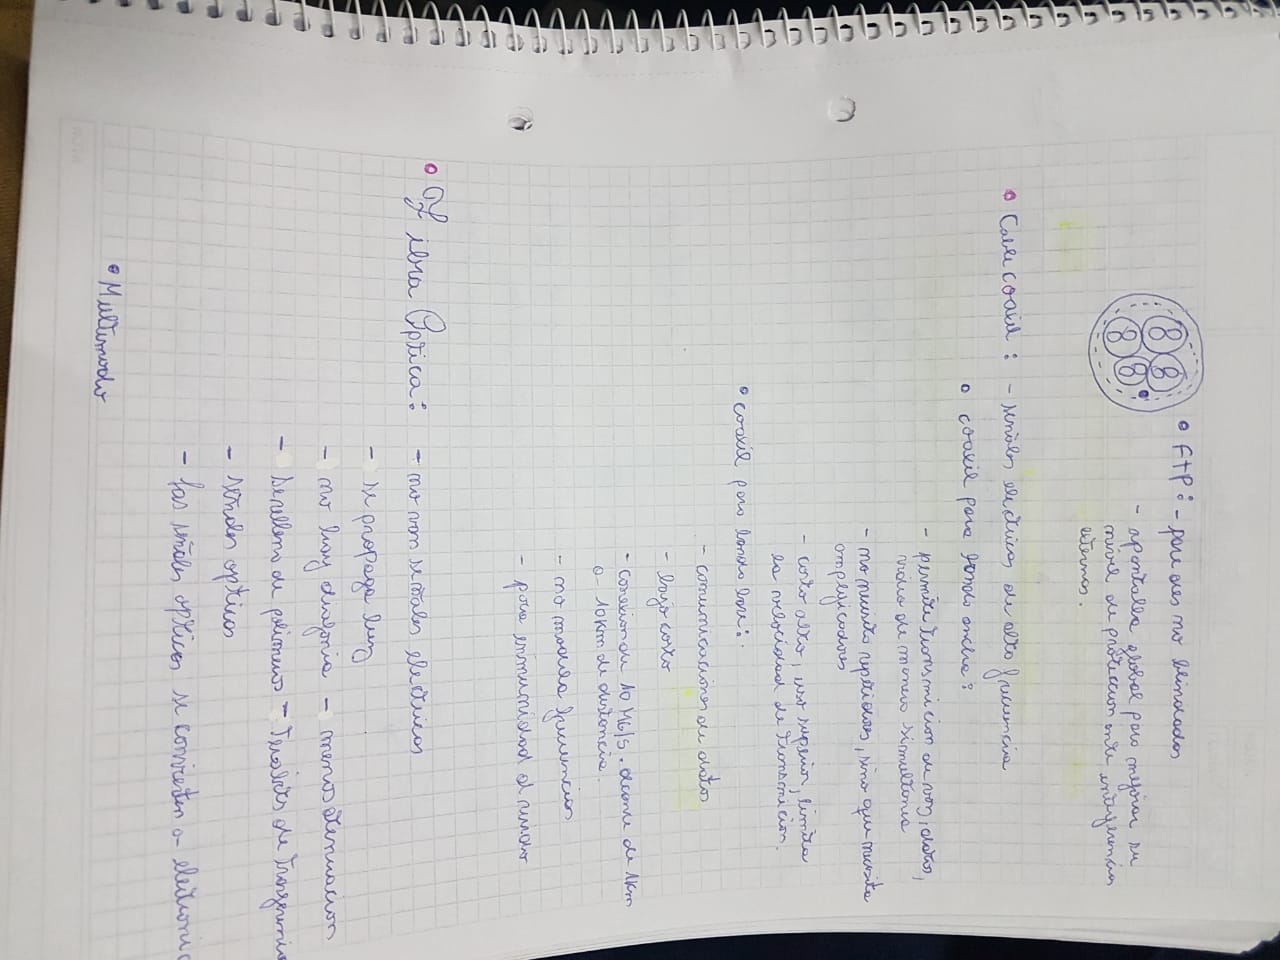 FTP: - pares no blindados
- apantalla global para mejorar su
nivel de proteccion ante interferencias
externas.
Cable coaxil: - señales electricas de alta frecuencia
coaxil para banda ancha:
- permite transmicion de voz, datos,
video de manera simultanea
- no necesita repetidores, sino que necesita
amplificadores
- costo alto, uso superior, limita
la velocidad de transmicion.
coaxil para banda base:
- comunicaciones de datos
- bajo costo
- conexion de 10 MG/s. alcance de 1km
a 10km de distancia.
- no modula frecuencias
- poca inmunidad al ruido
Fibra Optica: - no van señales electricas
- se propaga luz
- no hay diafonia - menos atenuacion
- de polimeros - de
- señales opticas
- Las señales opticas se convierten a
Multimodo